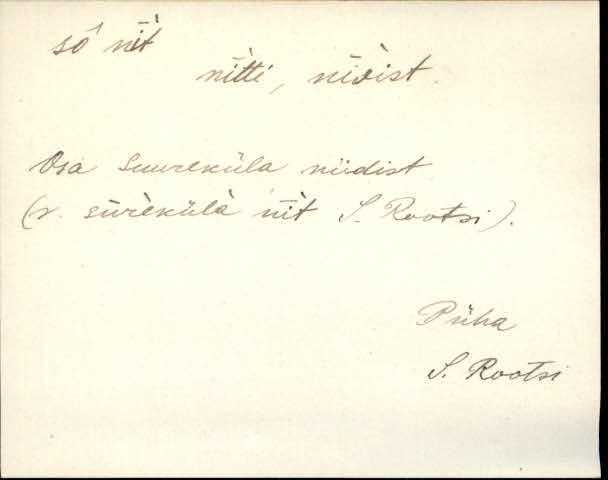 sô nīt̀
nītti, nīvist.
Osa Suureküla niidist
(v. sūrèkülà nīt̀ S. Rootsi).
Püha
S. Rootsi